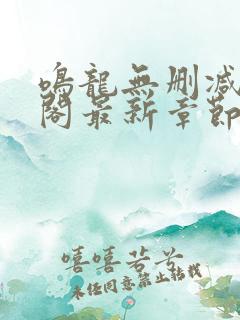 鳴龍無刪減
閣最新章節
嘻嘻若兮
未經同意禁止轉載